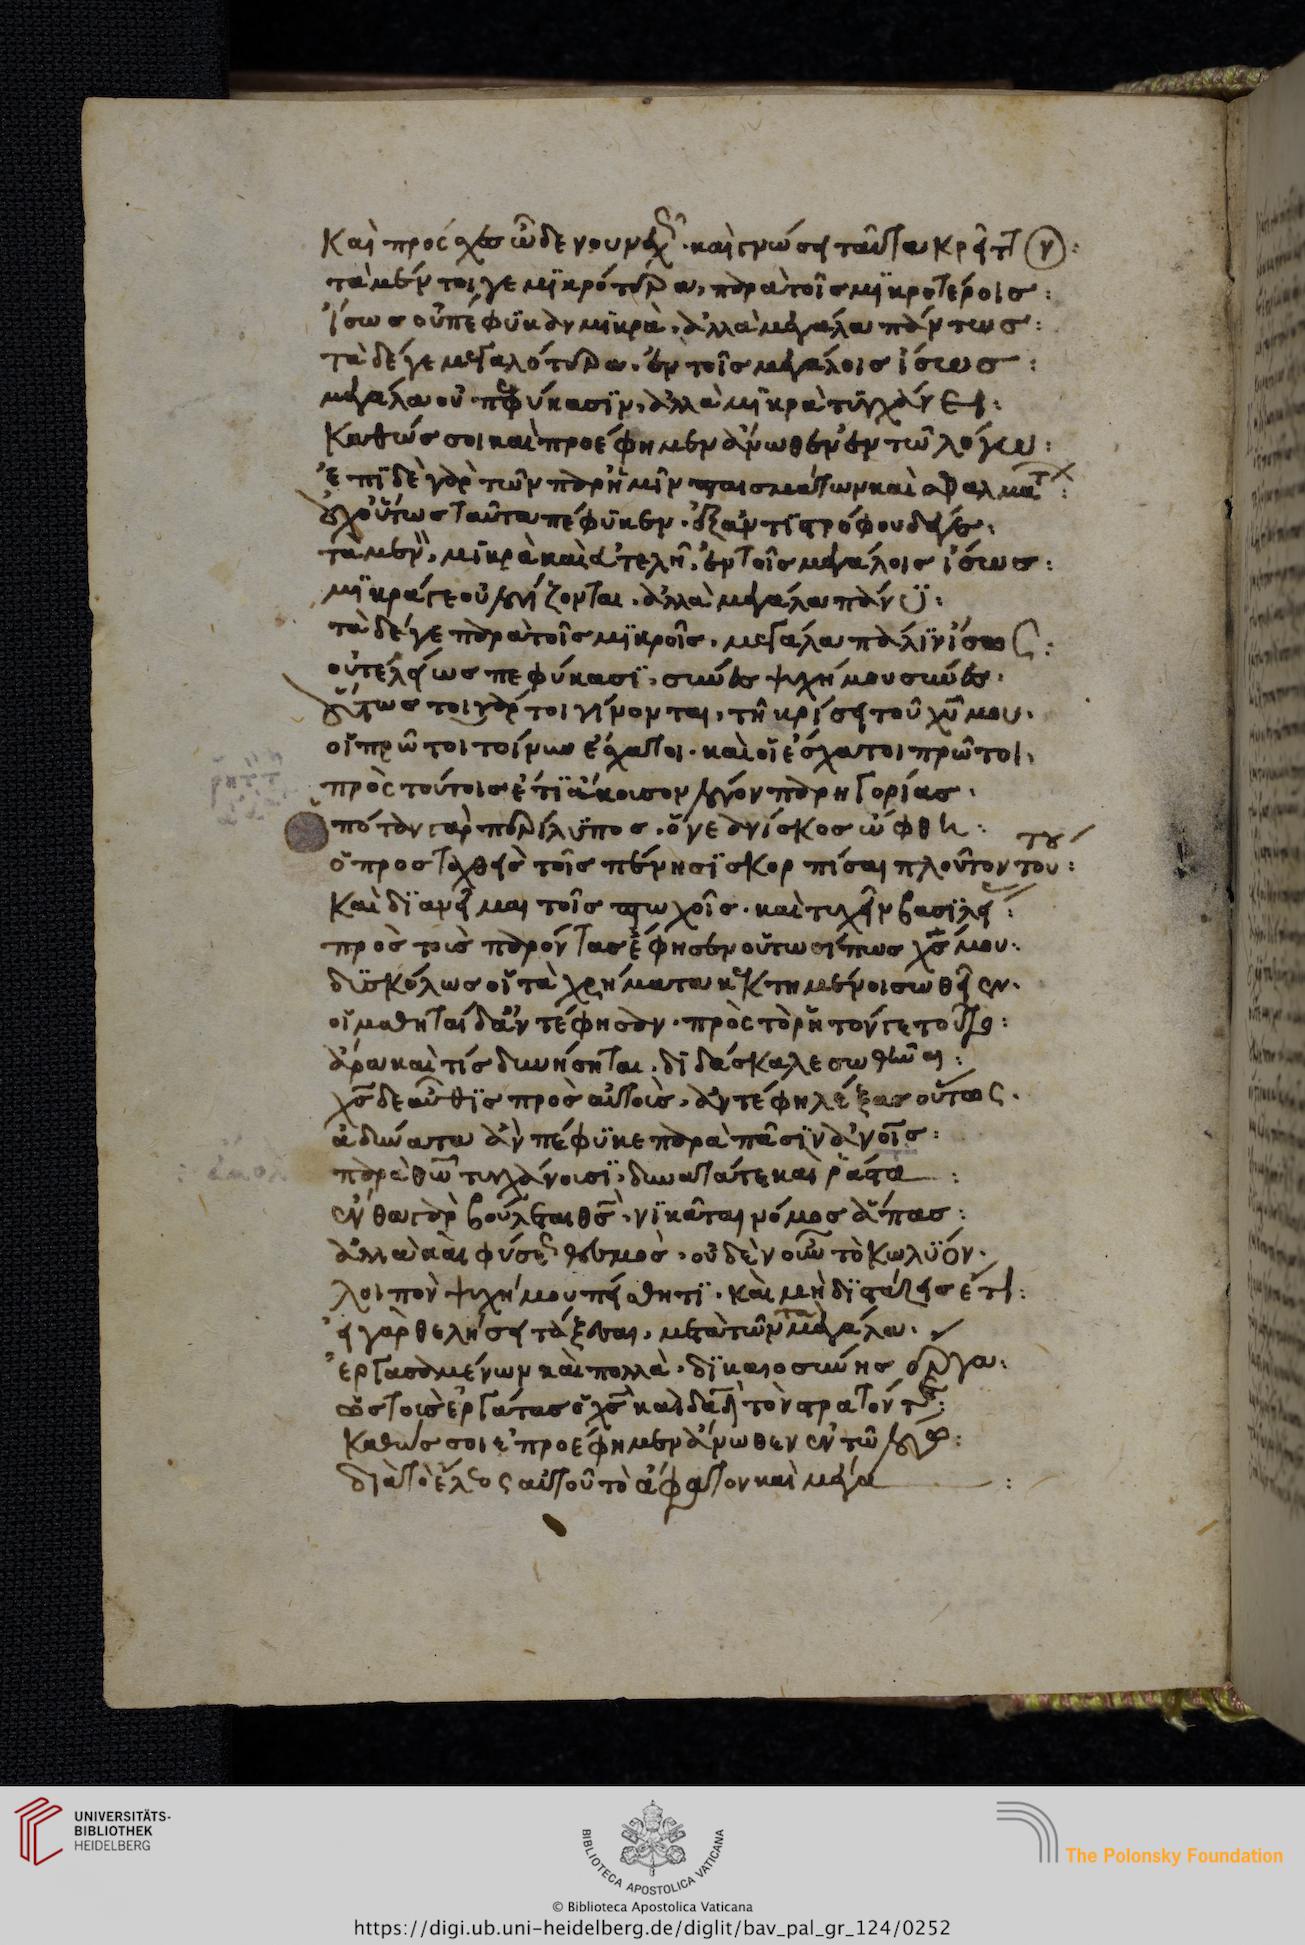 Καὶ πρόσχες ὧδε νουνεχῶς· καὶ γνώσῃ ταῦτα κρεῖττον:
τὰ μέν τοι γε μϊκρότερα, παρὰ τοῖς μϊκροτέροις:
ἴσως οὐ πέφϋκαν μϊκρὰ, ἀλλὰ μεγάλα πάντως:
τὰ δέ γε μεγαλότερα, ἐν τοῖς μεγάλοις ἴσως:
μεγάλα οὐ πεφύκασϊν, ἀλλὰ μϊκρὰ τϋγχάνει:
Καθώς σοι καὶ προέφημεν ἄνωθεν ἐν τῶ λόγω:
ἐπῒ δὲ γὰρ τῶν παρ ἡμῖν πταισμάτων καὶ σφαλμάτων:
οὐχ οὕτως ταῦτα πέφϋκεν· ἐξ ἀντϊστρόφου δ
τὰ μὲν, μϊκρὰ καὶ ἀτελῆ, ἐν τοῖς μεγάλοις ἴσως:
μϊκρά γε οὐ λογίζονται, ἀλλὰ μεγάλα πάνϋ:
τὰ δέ γε παρὰ τοῖς μϊκροῖς, μεγάλα πάλϊν ἴσως:
οὐ τελείως πεφύκασϊ, σύνες ψυχή μου σύνες·
οὕτως τοι γάρ τοι γίνονται, τῆ κρίσει τοῦ χῦ μου·
οἱ πρῶτοι τοίνυν ἔσχατοι· καὶ οἱ ἔσχατοι πρῶτοι,
πρὸς τούτοις ἔτϊ ἄκουσον λόγον παρηγορίας·
ὁπόταν γὰρ περίλϋπος, ὁ νεανίσκος ὤφθη:
ὁ προσταχθεὶς τοῖς πένησϊ σκορπίσαι πλοῦτον τούτου:
Καὶ δϊανεῖμαι τοῖς πτωχοῖς· καὶ τυχεῖν βασϊλεί
πρὸς τοὺς παρόντας ἔφησεν οὕτωσί πως χς μου:
δϋσκόλως οἱ τὰ χρήματα κεκτημένοι σωθεῖεν·
οἱ μαθηταὶ δ ἀντέφησαν· πρὸς τὸ ῥητόν γε τοῦτο:
ἄρα καὶ τίς δυνήσηται, δϊδάσκαλε σωθῆναι:
χς δε αὖθϊς πρὸς αὐτοὺς, ἀντέφη λέξας οὕτως·
ἀδύνατα ἂν πέφϋκε παρὰ πᾶσϊν ἀνοις:
παρὰ θῶ τυγχάνουσϊ, δυνατά τε καὶ ῥᾶστα:
ἔνθα γὰρ βούλεται θς, νϊκᾶται νόμος ἅπας:
ἀλλὰ καὶ φύσεως θεσμὸς, οὐδὲν οὖν τὸ κωλϋόν·
λοιπὸν ψυχή μου πείσθητϊ· καὶ μὴ δϊστάζεις ἔτι:
εἰ γὰρ θελήση τάξαι σαι, μετὰ τῶν τὰ μεγάλα·
ἐργασαμένων καὶ πολλὰ, δϊκαιοσύνης ἔργα:
ὡς τοὺς ἐργάτας ὁ χς καὶ δαδ τὸν πράττοντα:
Καθώς σοι προέφημεν ἄνωθεν ἐν τῶ λόγω:
διὰ τὸ ἔλεος αὐτοῦ τὸ ἄφατον καὶ μέγα:
UNIVERSITÄTS-
BIBLIOTHEK
HEIDELBERG
BIBLIOTECA APOSTOLICA VATICANA
The Polonsky Foundation
© Biblioteca Apostolica Vaticana
https://digi.ub.uni-heidelberg.de/diglit/bav_pal_gr_124/0252